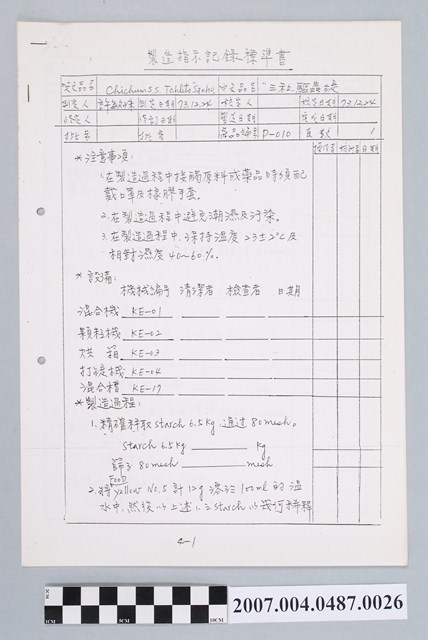 製造指示記錄標準書
英文品名 Chichun S.S. Tablets 中文品名 "三社" 驅蟲錠
制定人 制定日期 73.12.24 核定人 核定日期 73.12.24
修定人 修訂日期 製造日期 完成日期
批號 批量 產品編號 P-010 頁數 1
操作者 核對者 日期
*注意事項:
1.在製造過程中接觸原料或藥品時須配
戴口罩及橡膠手套。
2.在製造過程中避免潮濕及污染。
3.在製造過程中,保持溫度23±2°C及
相對濕度40~60%。
*設備:
機械編號 清潔者 檢查者 日期
混合機 KE-01
顆粒機 KE-02
烘箱 KE-03
打錠機 KE-04
混合槽 KE-17
*製造過程:
1.精確秤取starch 6.5kg,通過80mesh。
starch 6.5kg kg
篩子 80mesh mesh
Food
2.將yellow No.5 計12g溶於100ml的溫
水中,然後以上述1.之starch以幾何稀釋
4-1
1CM 5CM 10CM
2007.004.0487.0026